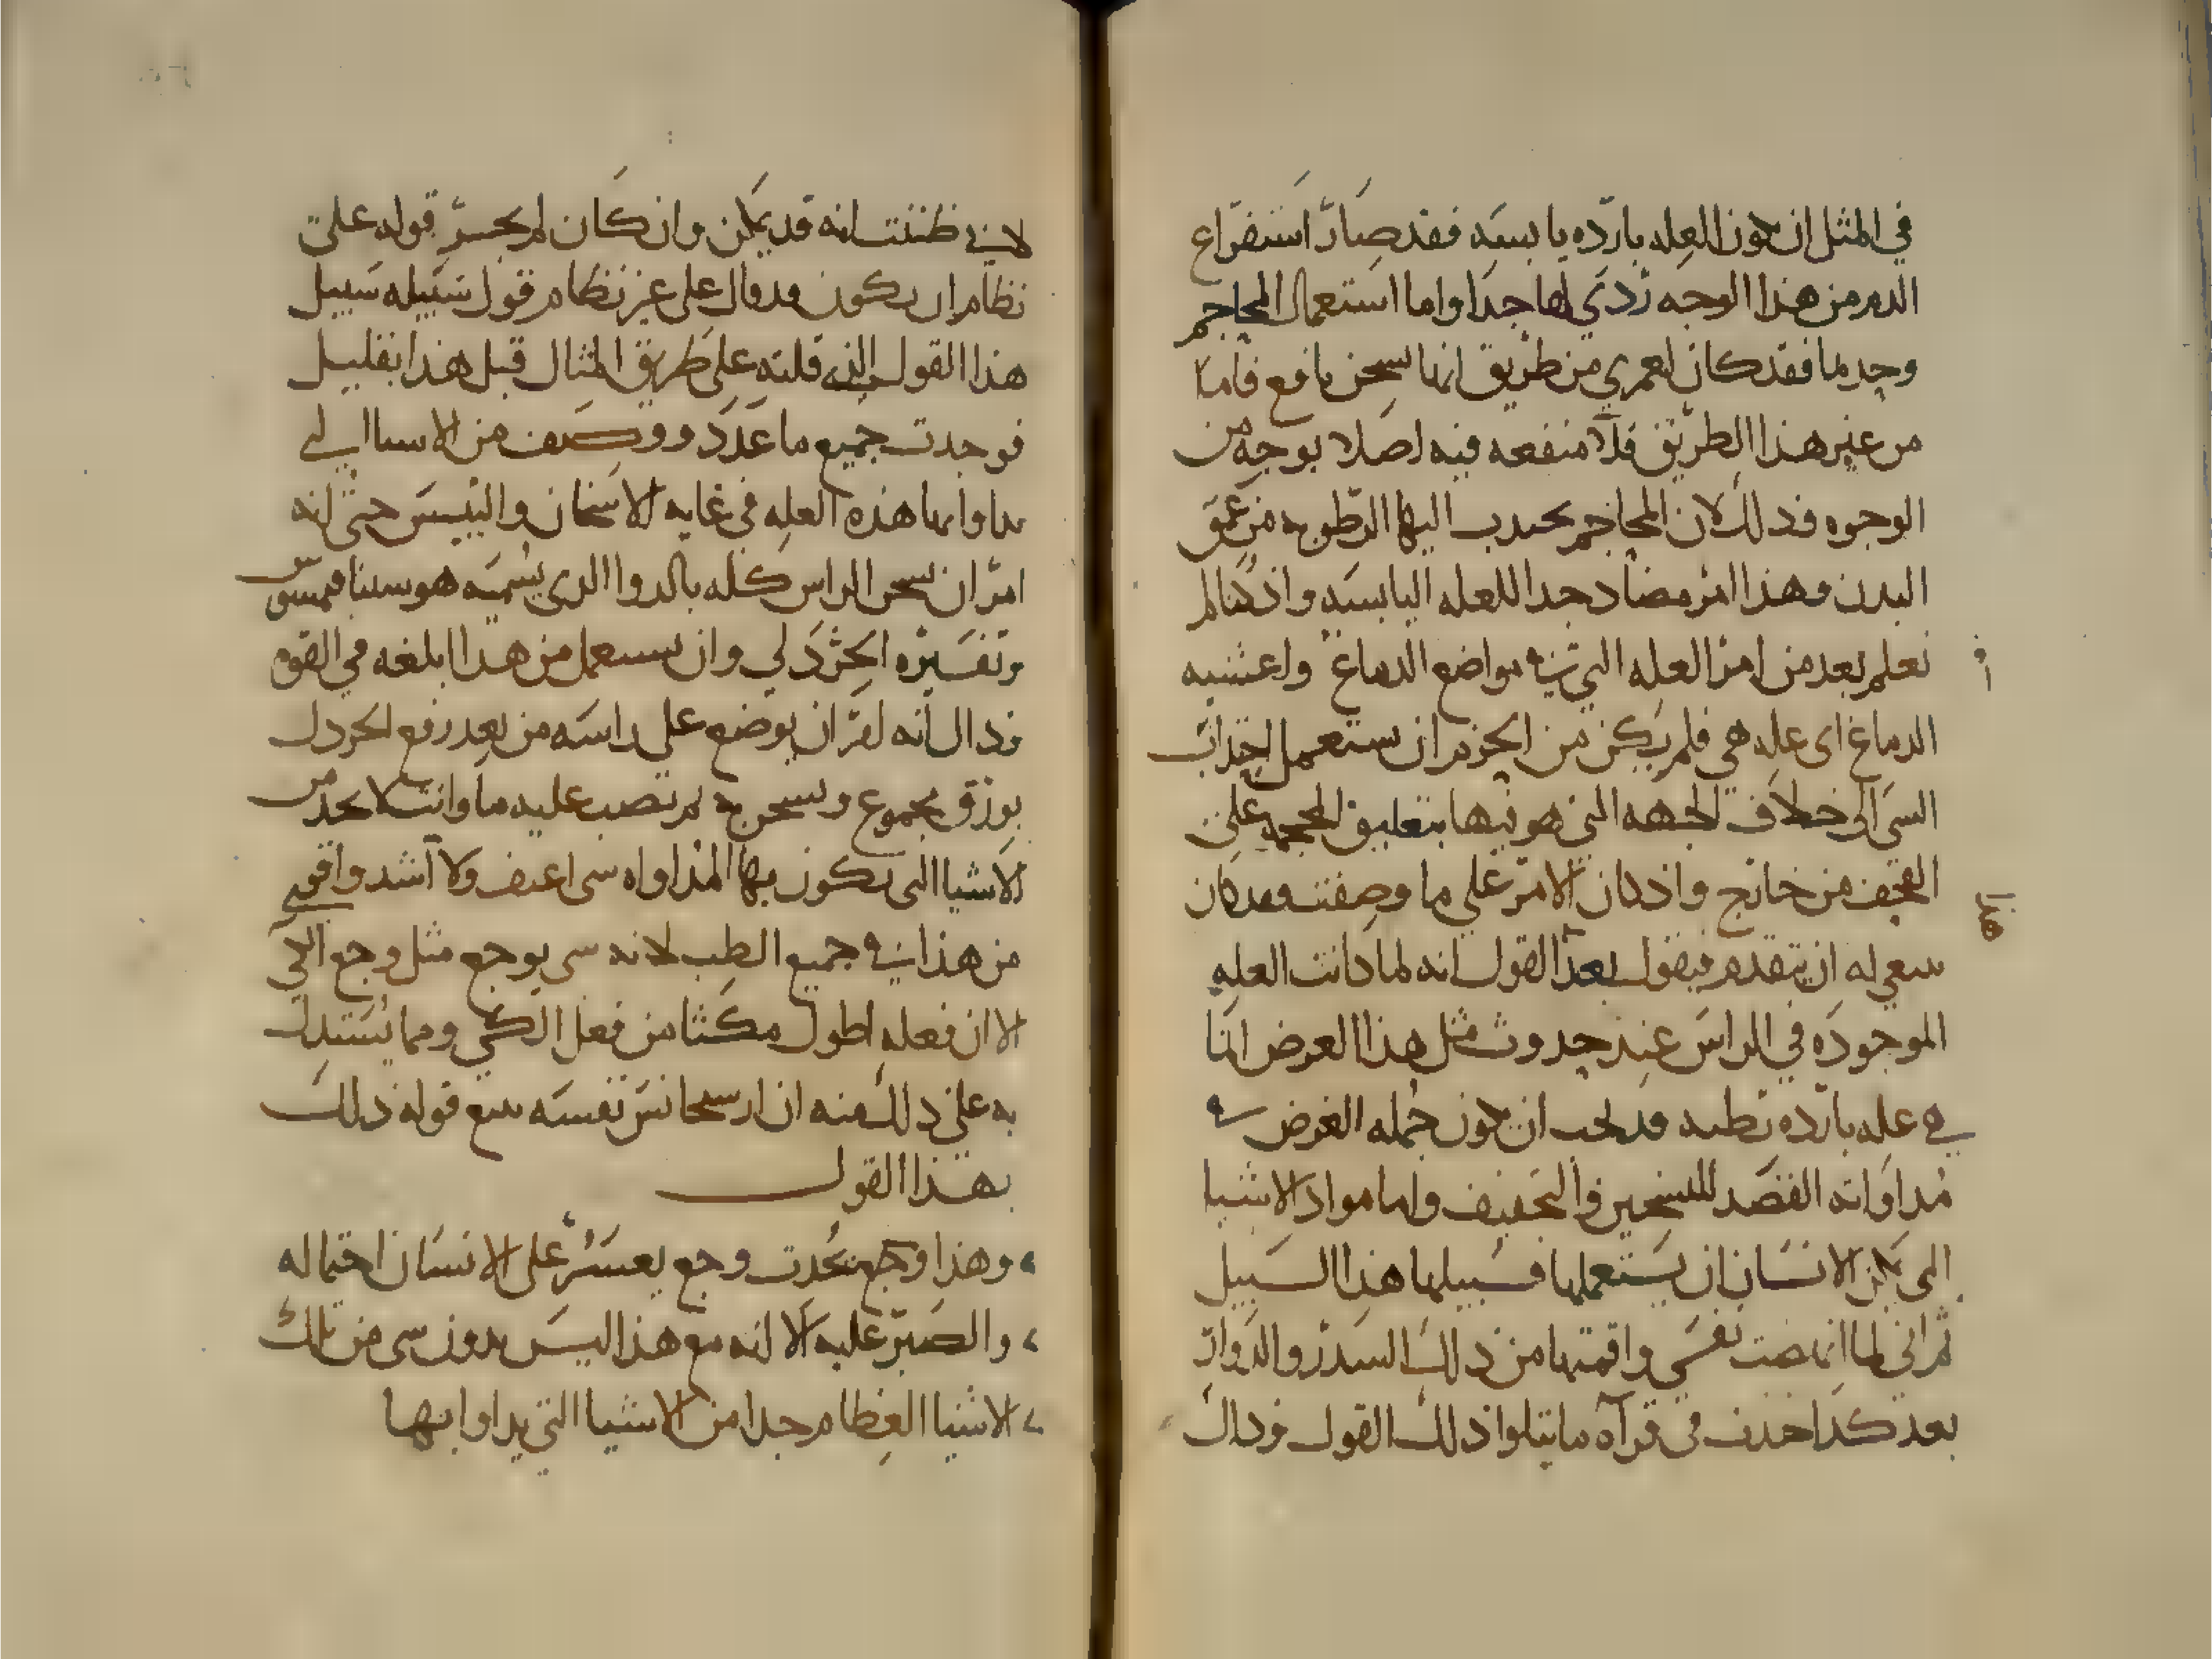 في المثل ان تكون العله بارده يابسه فقد صار استفراغ
الدم من هذا الوجه ردي لها جدا واما استعمال المحاجم
وحدها فقد كان لعمري من طريق انها تسخن نافع فاما
من غير هذا الطريق فلا منفعه فيه اصلا بوجه من
الوجوه وذلك لان المحاجم تجذب اليها الرطوبه من عمق
البدن وهذا امر مضاد جدا للعله اليابسه واذ كنا لم
نعلم بعد من امر العله التي في مواضع الدماغ واغشيه
الدماغ اى عله هي فلم يكن من الحزم ان نستعمل اجذاب
الشي الى خلاف الجهه التي هو فيها بتعليق المحجمه على
القحف من خارج واذ كان الامر على ما وصفت وقد كان
ينبغي له ان يتقدم فيقول بعد القول انه لما كانت العله
الموجوده في الراس عند حدوث مثل هذا العرض انما
هي عله بارده رطبه قد يجب ان تكون جمله الغرض في
مداواته القصد للتسخين والتجفيف واما مواد الاشيا
التي يمكن الانسان ان يستعملها فسبيلها هذا السبيل
ثم اني لما انهضت نفسي واقمتها من ذلك السدر والدوار
بعد كد اخذت في قراه ما يتلوا ذلك القول وذلك
لاني ظننت انه قد يمكن وان كان لم يجسر قوله على
نظام ان يكون قد قال على غير نظام قول سبيله سبيل
هذا القول الذي قلته على طريق المثال قبل هذا بقليل
فوجدت جميع ما عدد ووصف من الاشيا التي
يداوا بها هذه العله في غايه الاسخان واليبس حتى انه
امر ان يسخن الراس كله بالدوا الذي يسميه
وتفسيره الخردلي وان يستعمل من هذا ابلغه في القوه
وذاك انه امر ان يوضع على راسه من بعد رفع الخردل
بورق مجموع ويسخن به ثم تصب عليه ما وانت لا تجد من
الاشيا التي تكون بها المداواه شي اعنف ولا اشد واقوى
من هذا في جميع الطب لانه شي يوجع مثل وجع الكي
الا ان فعله اطول مكثا من فعل الكي ومما يستدل
به على ذلك منه ان ارشيجانس نفسه يتبع قوله ذلك
بهذا القول
وهذا وجه يحدث وجع يعسر على الانسان احتماله
والصبر عليه الا انه مع هذا ليس بدون شي من تلك
الاشيا العظام جدا من الاشيا التي يداوا بها